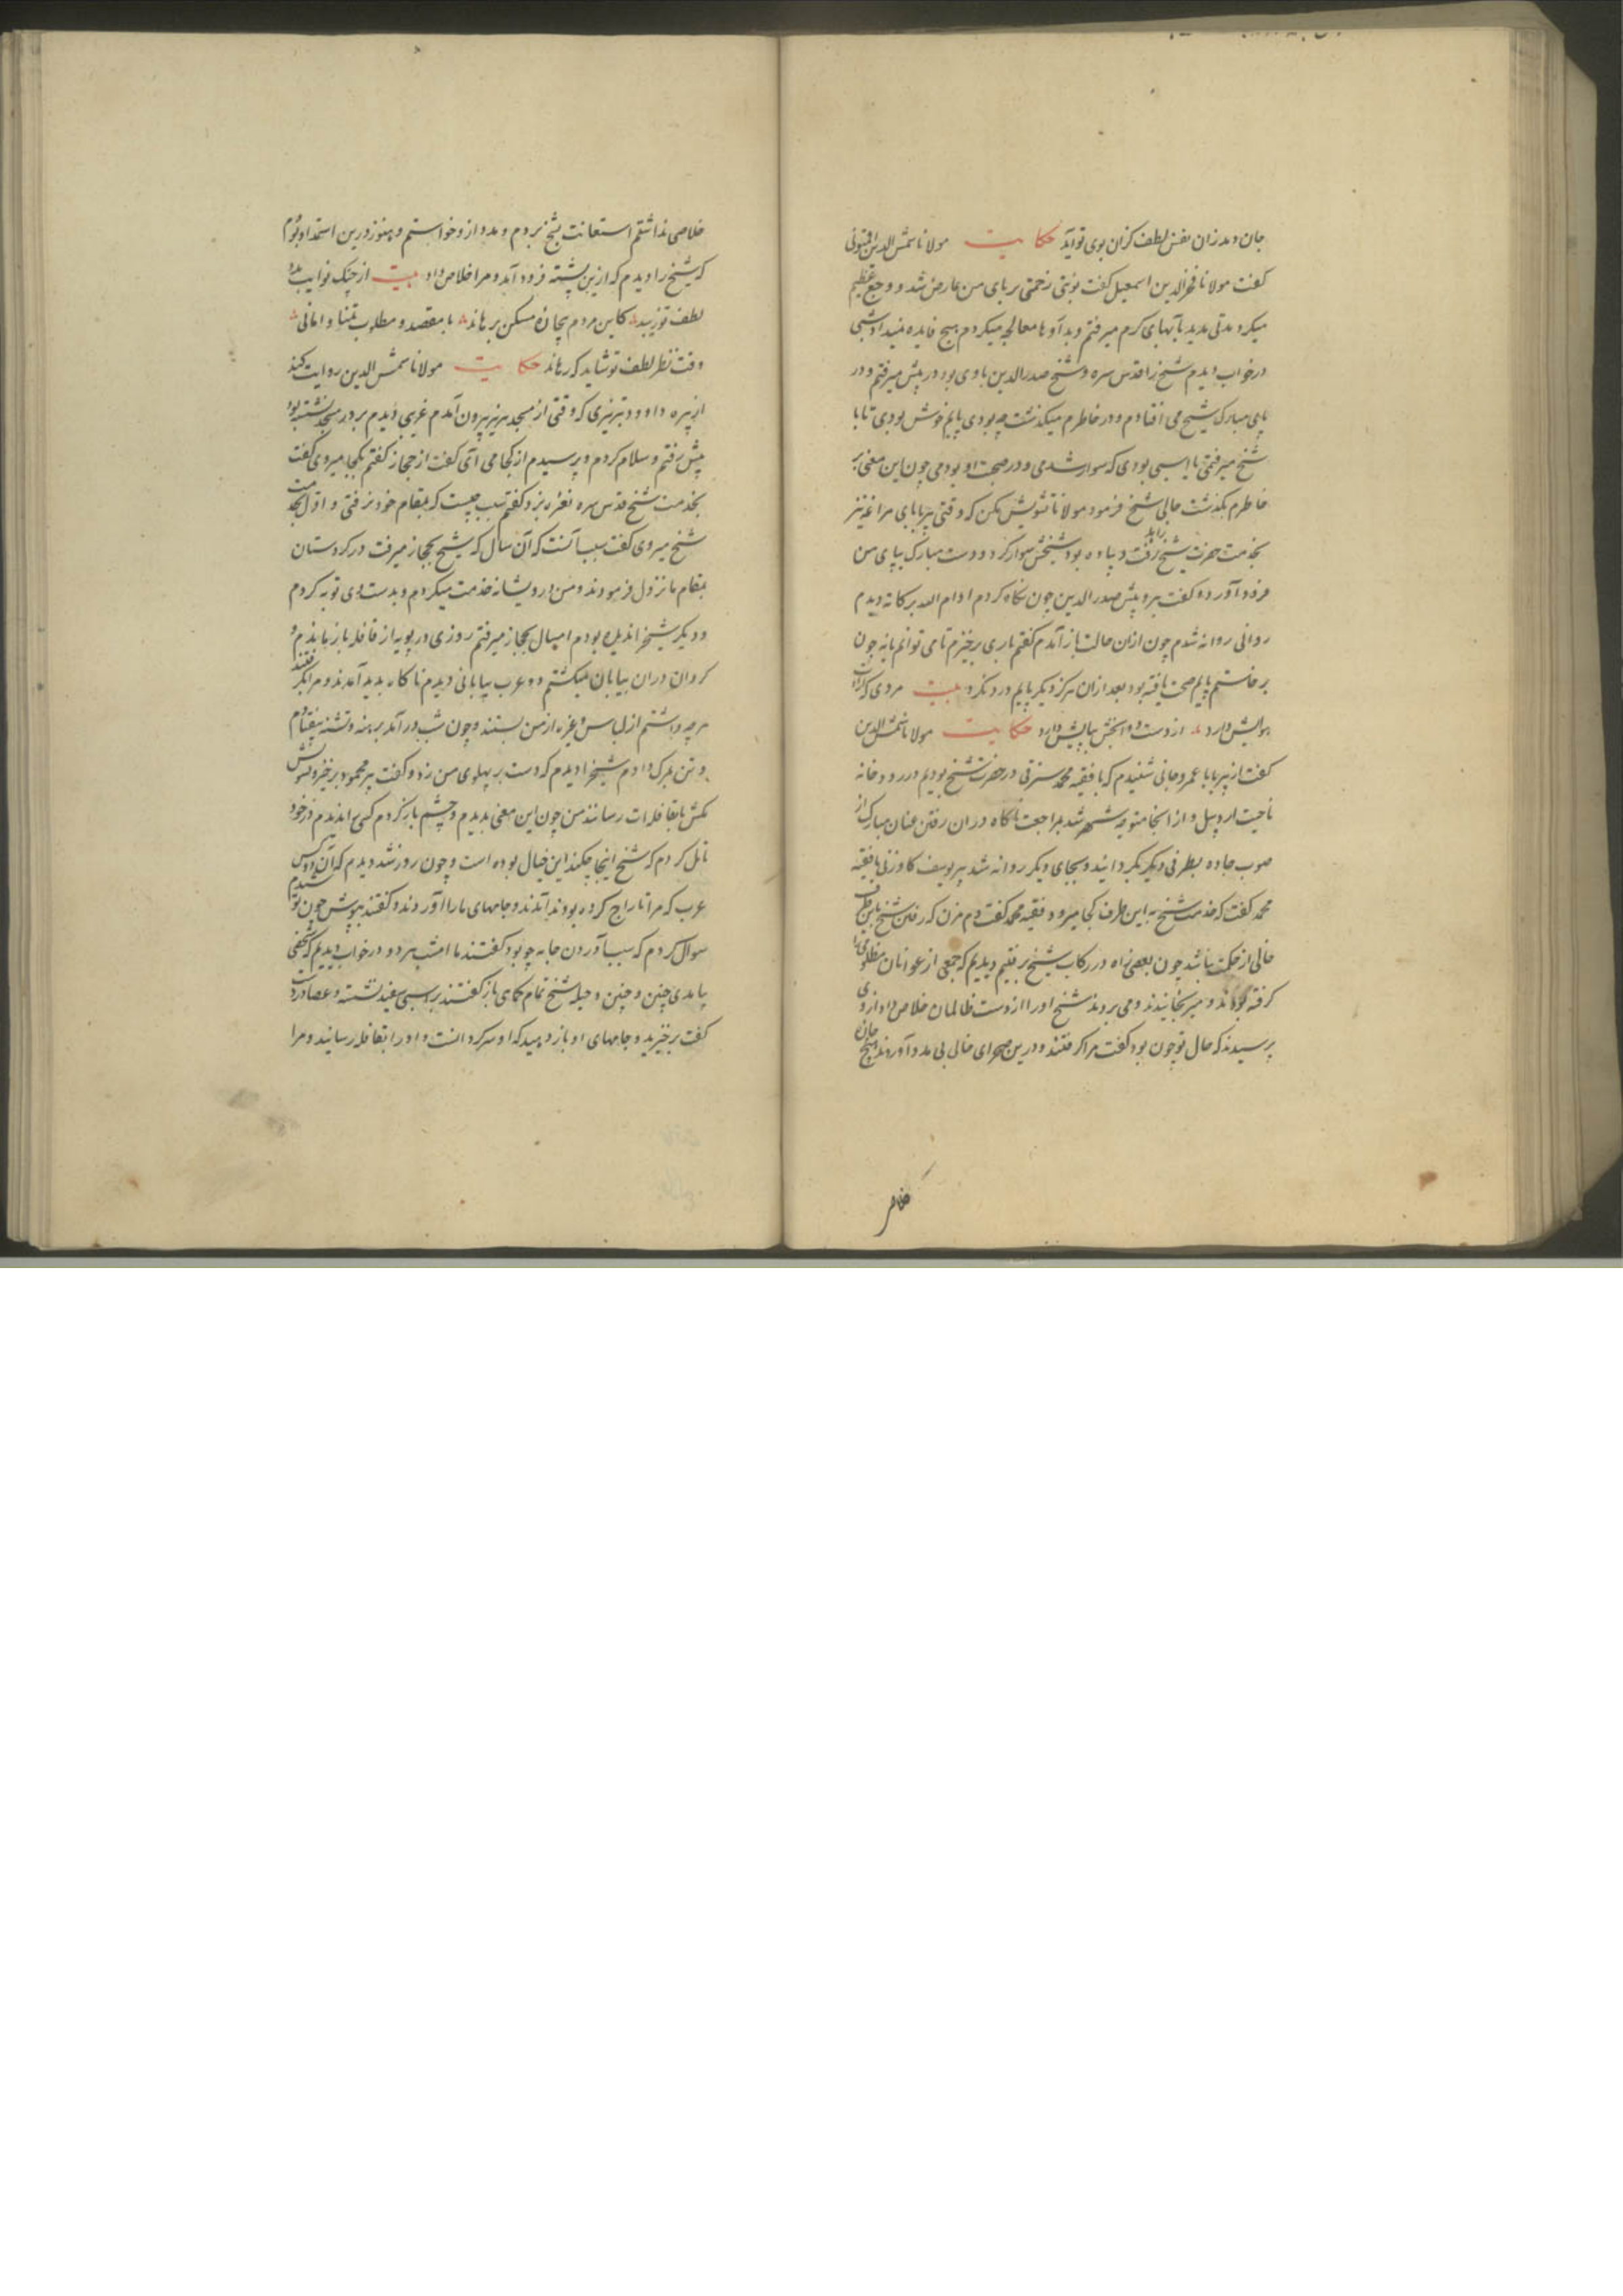 جان دمد زان نفس لطف کزان بوی تو آید حکایت مولانا شمس الدین اقتیونی
گفت مولانا فخرالدین اسمعیل گفت نوبتی زحمتی بر پای من عارض شد و وجع عظیم
میکرد مدتی مدید بآبهای گرم میرفتم و بدآوها معالجه میکردم هیچ فایده نمیداد شبی
در خواب دیدم شیخ را قدس سره و شیخ صدرالدین با وی بود در پیش میرفتم و در
پای مبارک شیخ می افتادم و در خاطرم میگذشت چه بودی پایم خوش بودی تا با
شیخ میرفتمی یا اسبی بودی که سوار شدمی و در صحبت او بودمی چون این معنی بر
خاطرم بگذشت حالی شیخ فرمود مولانا تشویش مکن که وقتی پیر بابای مراغه نیز
بخدمت حضرت شیخ زاید رفت و پیاده بود شیخش سوار کرد و دست مبارک بپای من
فرود آورد و گفت برو پیش صدرالدین چون نگاه کردم ادام الله برکاته دیدم
روانی روانه شدم چون ازان حالت باز آمدم گفتم باری برخیزم تا می توانم یا نه چون
برخاستم پایم صحت یافته بود بعد ازان هرگز دیگر پایم درد نکرد بیت مردی که کرات
بولیش دارد از دست دوا بخش بپایش دارد حکایت مولانا شمس الدین
گفت از پیر بابا عمروجانی شنیدم که با فقیه محمد سنرقی در حضرت شیخ بودیم در رودخانه
ناحیت اردبیل و از انجا متوجه شهر شد بمراجعت ناگاه دران رفتن عنان مبارک از
صوب جاده بطرفی دیگر بگردانید و بجای دیگر روانه شد پیر یوسف کاوزنی با فقیه
محمد گفت که خدمت شیخ به این طرف کجا میرود فقیه محمد گفت دم مزن که رفتن شیخ باین طرف
خالی از حکمت نباشد چون بعضی راه در رکاب شیخ برفتیم دیدیم که جمعی از عوانان مظلومی را
گرفته بودند و میرنجانیدند و می بردند شیخ او را از دست ظالمان خلاص داد از وی
پرسیدند که حال تو چون بود گفت مرا گرفتند و درین صحرای خالی بی مدد آوردند و هیچ جای
خلاص
خلاصی نداشتم استعانت بشیخ بردم و مدد ازو خواستم و هنوز درین استمداد بودم
که شیخ را دیدم که ازین پشته فرود آمد و مرا خلاص داد بیت از چنک نوایب مدد
لطف تو زیبد کاین مردم بیچاره مسکین برهاند با مقصد و مطلوب تمنا و امانی
وقت نظر لطف تو شاید که رساند حکایت مولانا شمس الدین روایت کند
از پیره داوود تبریزی که وقتی از مسجد برنیز بیرون آمدم غریبی دیدم بر در مسجد نشسته بود
پیش رفتم و سلام کردم و پرسیدم از کجا می آئی گفت از حجاز گفتم بکجا میروی گفت
بخدمت شیخ قدس سره نعره بزد گفتم سبب چیست که بمقام خود نرفتی و اول بخدمت
شیخ میروی گفت سبب آنست که آن سال که شیخ بحجاز میرفت در کردستان
بمقام ما نزول فرمودند و من درویشانه خدمت میکردم و بدست وی توبه کردم
و دیگر شیخ را ندیده بودم امسال بحجاز میرفتم روزی در بویه از قافله باز ماندم و
گردان دران بیابان میگشتم دو عرب بیابانی دیدم ناگاه بدید آمدند و مرا بگرفتند
هرچه داشتم از لباس و غیره از من بستدند و چون شب درآمد برهنه و تشنه بیفتادم
و تن بمرگ دادم شیخ را دیدم که دست بر پهلوی من زد و گفت پیر محمود برخیز و بپوش
مکش تا بقافله ات رسانند من چون این معنی بدیدم و چشم باز کردم کسی را ندیدم در خود
تامل کردم که شیخ اینجا چکند این خیال بوده است و چون روز شد دیدم که آن دو کس
عرب که مرا تاراج کرده بودند آمدند و جامهای مارا آوردند و گفتند بپوش چون بپوشیدم
سوال کردم که سبب آوردن جامه چه بود گفتند ما امشب هر دو در خواب دیدیم که شخصی
بیامدی چنین و چنین و حیله شیخ تمام بجای باز گفتند بر اسبی سفید نشسته و عصا در دست
گفت برخیزید و جامهای او باز دهید که او سرگردانست و او را بقافله رسانید و مرا